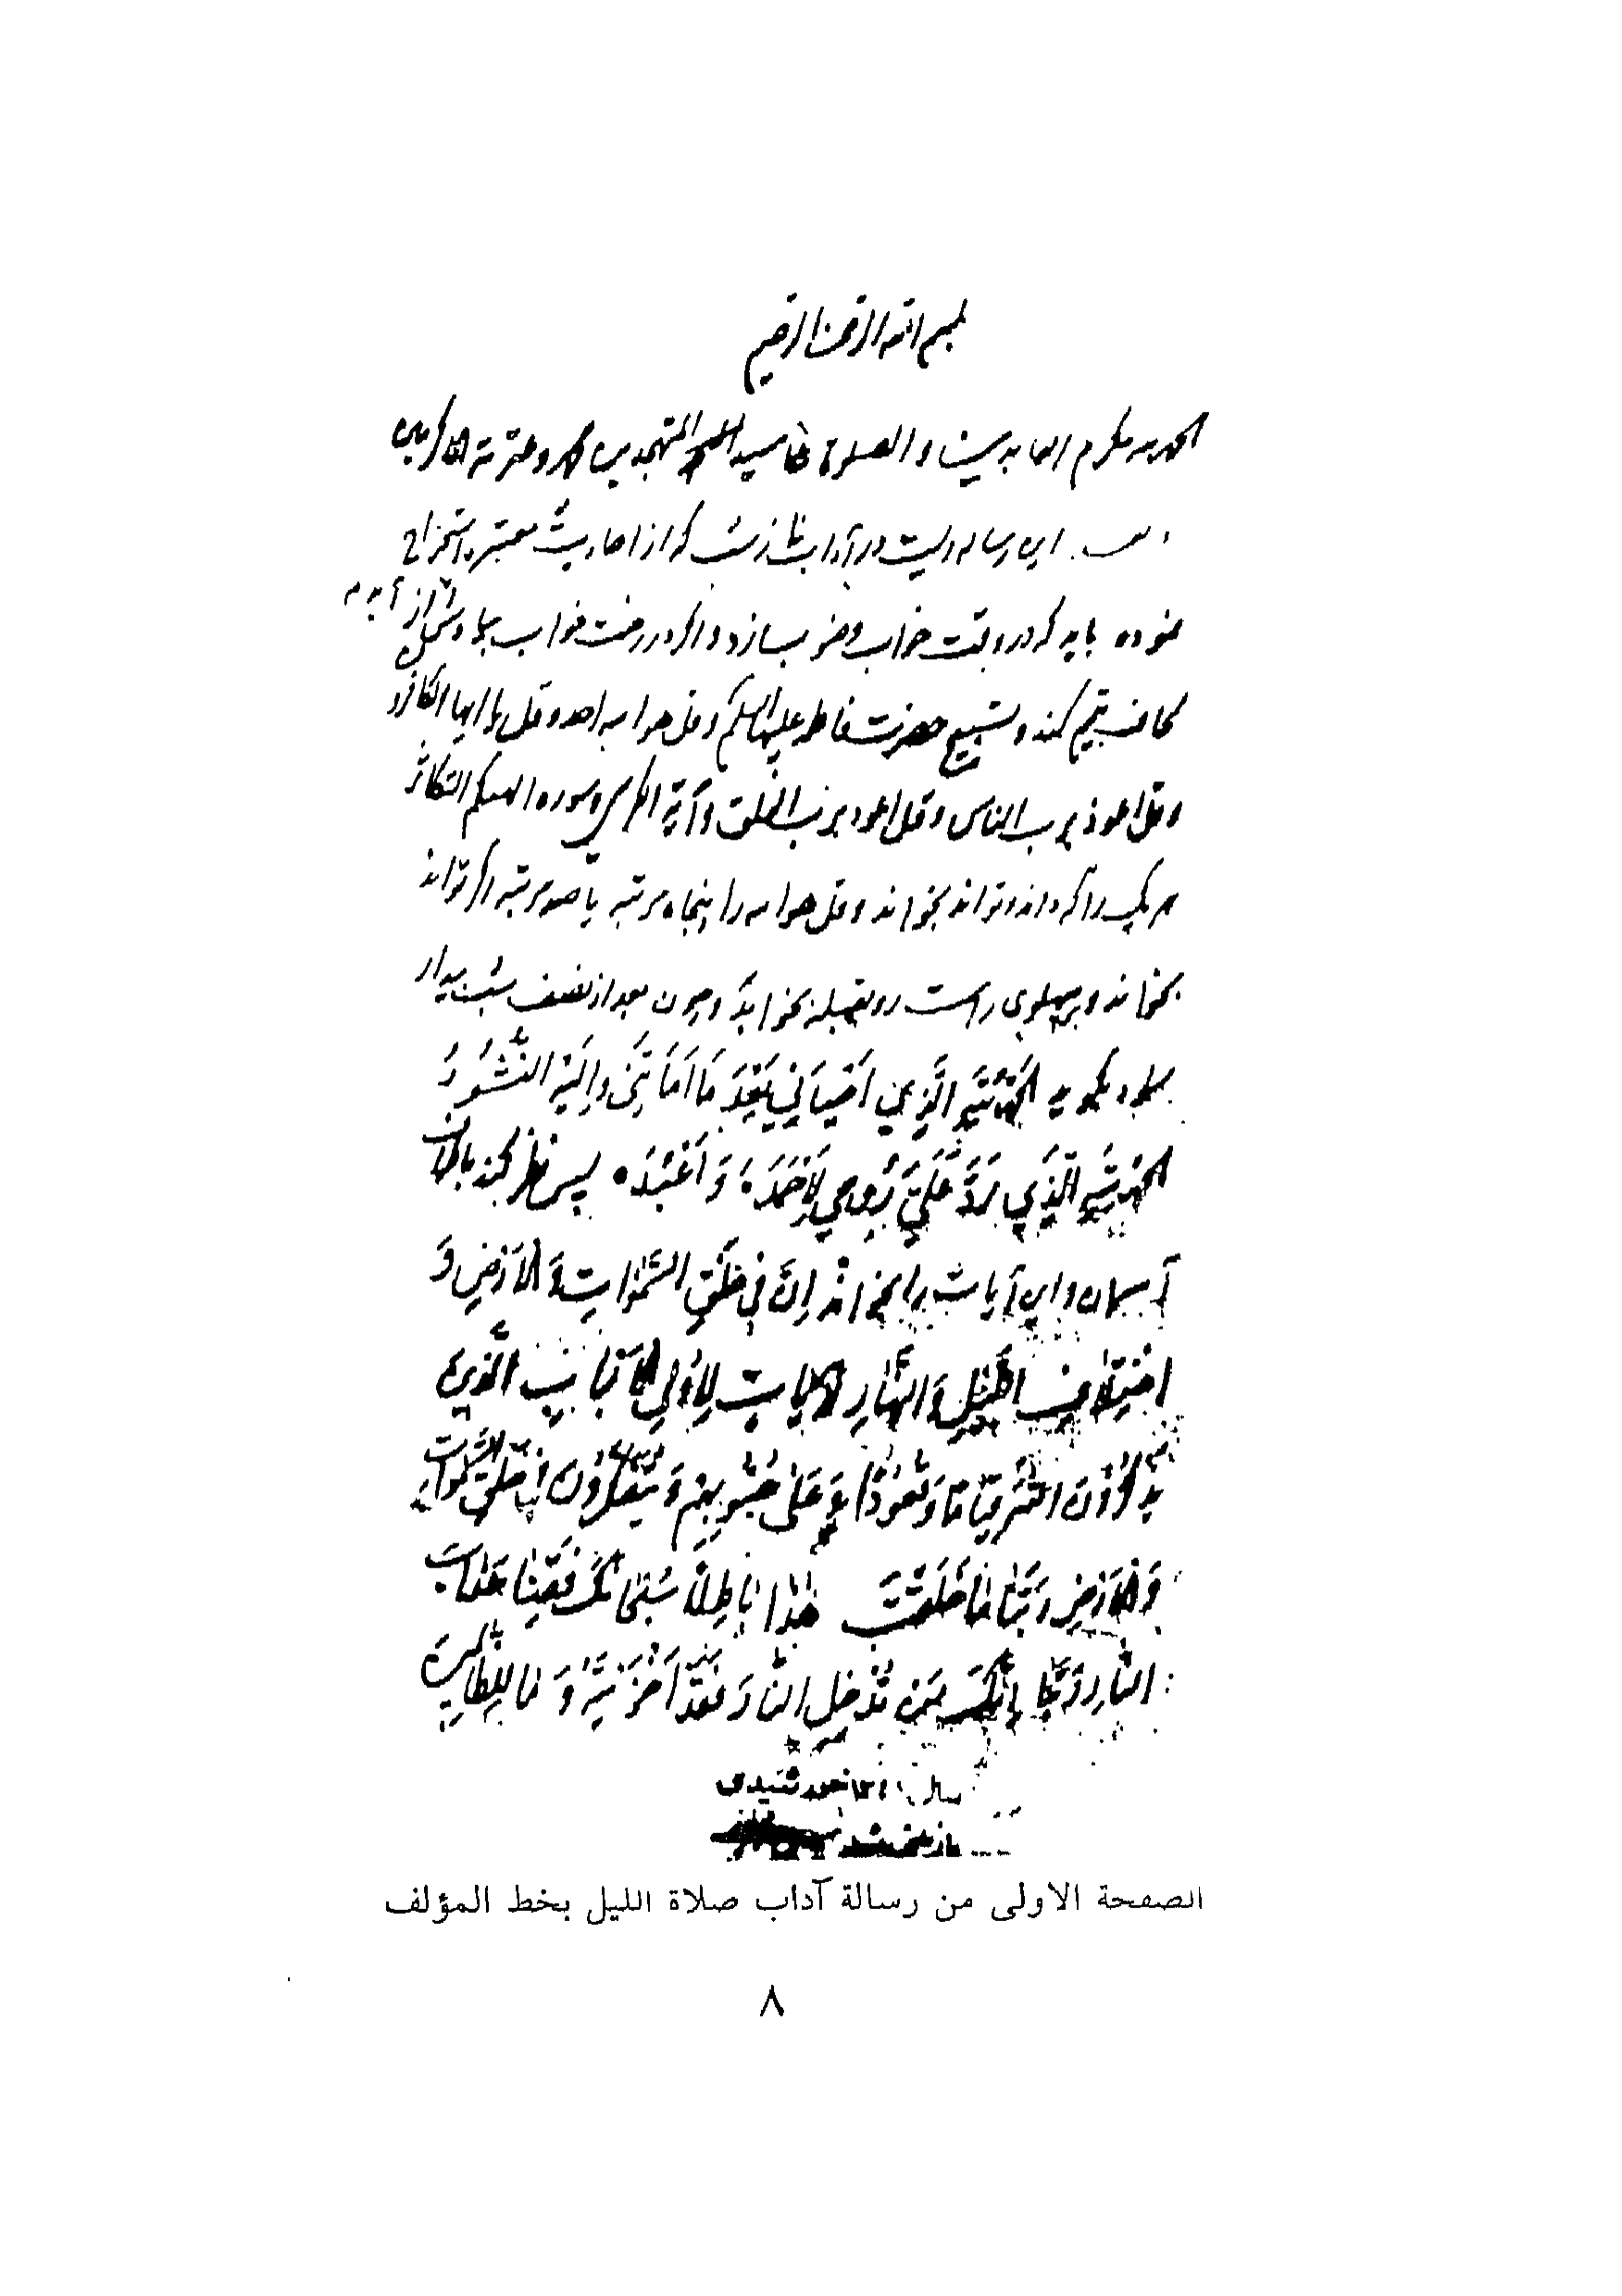 بسم الله الرحمن الرحیم
الحمد لله مکرم العابدین و الصلوة علی سید المتهجدین محمد و عترته الاکرمین
و بعد این رساله‌ایست در آداب نماز شب که از احادیث معتبره استخراج
نموده باید که در وقت خواب وضو بسازد و اگر در رخت خواب بیاد
لحاف تیمم کند و تسبیح حضرت فاطمه علیها السلم و قل هو الله احد و قل یا ایها الکافرون
و قل اعوذ برب الناس و قل اعوذ برب الفلق و آیة الکرسی و سوره الهیکم التکاثر
هر یک را که داند و تواند بخواند و قل هو الله را پنجاه مرتبه یا صد مرتبه اگر تواند
بخواند و بر پهلوی راست رو بقبله بخوابد و چون بعد از نصف شب بیدار
بگوید اَلحَمْدُ لِلّٰهِ الَّذِي اَحْيَانِي بَعْدَ مَا اَمَاتَنِي وَاِلَيْهِ النُّشُورُ
الحَمْدُ لِلّٰهِ الَّذِي رَدَّ عَلَيَّ رُوحِي لِاَحْمَدَهُ وَ اَعْبُدَهُ پس نظر کند باطراف
آسمان و این آیات را بخواند اِنَّ فِي خَلْقِ السَّمٰوَاتِ وَ الاَرْضِ وَ
اخْتِلَافِ اللَّيْلِ وَ النَّهَارِ لَآيَاتٍ لِاُولِي الْاَلْبَابِ الَّذِينَ
يَذْكُرُونَ اللهَ قِيَامًا وَ قُعُودًا وَ عَلَىٰ جُنُوبِهِمْ وَ يَتَفَكَّرُونَ فِي خَلْقِ السَّمٰوَاتِ
وَ الْاَرْضِ رَبَّنَا مَا خَلَقْتَ هٰذَا بَاطِلًا سُبْحَانَكَ فَقِنَا عَذَابَ
النَّارِ رَبَّنَا اِنَّكَ مَنْ تُدْخِلِ النَّارَ فَقَدْ اَخْزَيْتَهُ وَ مَا لِلظَّالِمِينَ
الصفحة الاولى من رسالة آداب صلاة الليل بخط المؤلف
٨